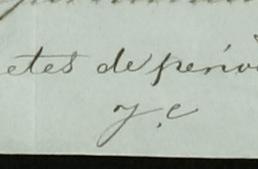 etes de perio
y.c